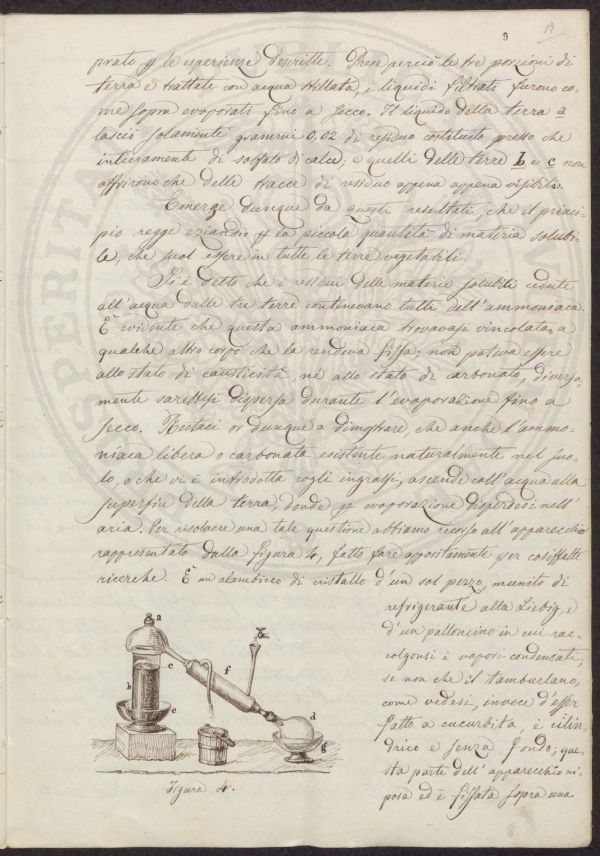 9
prato p le esperienze descritte. Prese perciò le tre porzioni di
terra e trattate con acqua stillata, i liquidi filtrati furono co-
me sopra evaporati fino a secco. Il liquido della terra a
lasciò solamente grammi 0,02 di residuo costituito presso che
intieramente di solfato di calce; e quelli delle terre b e c non
offrirono che delle tracce di residuo appena appena visibili.
Emerge dunque da questi resultati, che il princi-
pio regge eziandio p la piccola quantità di materia solubi-
le, che suol essere in tutte le terre vegetabili.
Si è detto che i residui delle materie solubili cedute
all'acqua dalle tre terre contenevano tutti dell'ammoniaca.
È evidente che questa ammoniaca trovavasi vincolata a
qualche altro corpo che la rendeva fissa; non poteva essere
allo stato di causticità, nè allo stato di carbonato, diversa-
mente sarebbesi dispersa durante l'evaporazione fino a
secco. Restaci or dunque a dimostrare, che anche l'ammo-
niaca libera o carbonata esistente naturalmente nel suo-
lo, o che vi è introdotta cogli ingrassi, ascende coll'acqua alla
superficie della terra, donde p evaporazione disperdesi nell'
aria. Per resolvere una tale questione abbiamo ricorso all'apparecchio
rappresentato dalla figura 4, fatto fare appositamente per cosiffatte
ricerche. È un alambicco di cristallo d'un sol pezzo, munito di
refrigerante alla Liebig, e
d'un palloncino in cui rac-
colgonsi i vapori condensati;
se non che il tamburlano,
come vedesi, invece d'esser
fatto a cucurbita, è cilin-
drico e senza fondo; que-
sta parte dell'apparecchio ri-
posa ed è fissata sopra una
a
c
f
b
e
d
g
Figura 4.